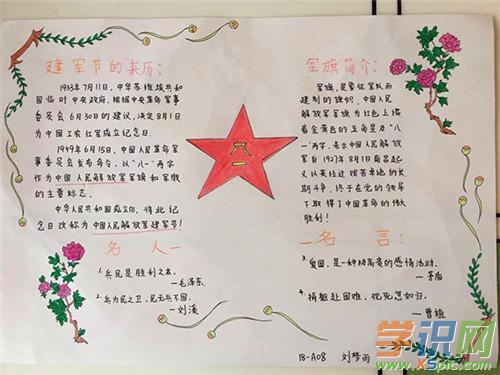 建军节的来历:
1933年7月11日,中华苏维埃共和
国临时中央政府,根据中央革命军事
委员会6月30日的建议,决定8月1日
为中国工农红军成立纪念日.
1949年6月15日,中国人民革命军
事委员会发布命令,以"八一"两字
作为中国人民解放军军旗和军徽
的主要标志.
中华人民共和国成立后,将此纪
念日改称为中国人民解放军建军节!
八一
军旗简介:
军旗,是象征军队和
建制的旗帜,中国人民
解放军军旗为红色上缀
着金黄色的五角星及"八
一"两字,表示中国人民解放
军自1927年8月1日南昌起
义以来经过艰苦卓绝的长
期斗争,终于在党的领导
下取得了中国革命的伟大
胜利!
名人一
1.兵民是胜利之本.
—毛泽东
2.兵为民之卫,民无兵不固.
—刘溪
一名言:
3.爱国,是一种崇高的感情活动.
—茅盾
4.捐躯赴国难,视死忽如归.
—曹植
18-A08 刘梦雨
学识网
www.xSpic.com